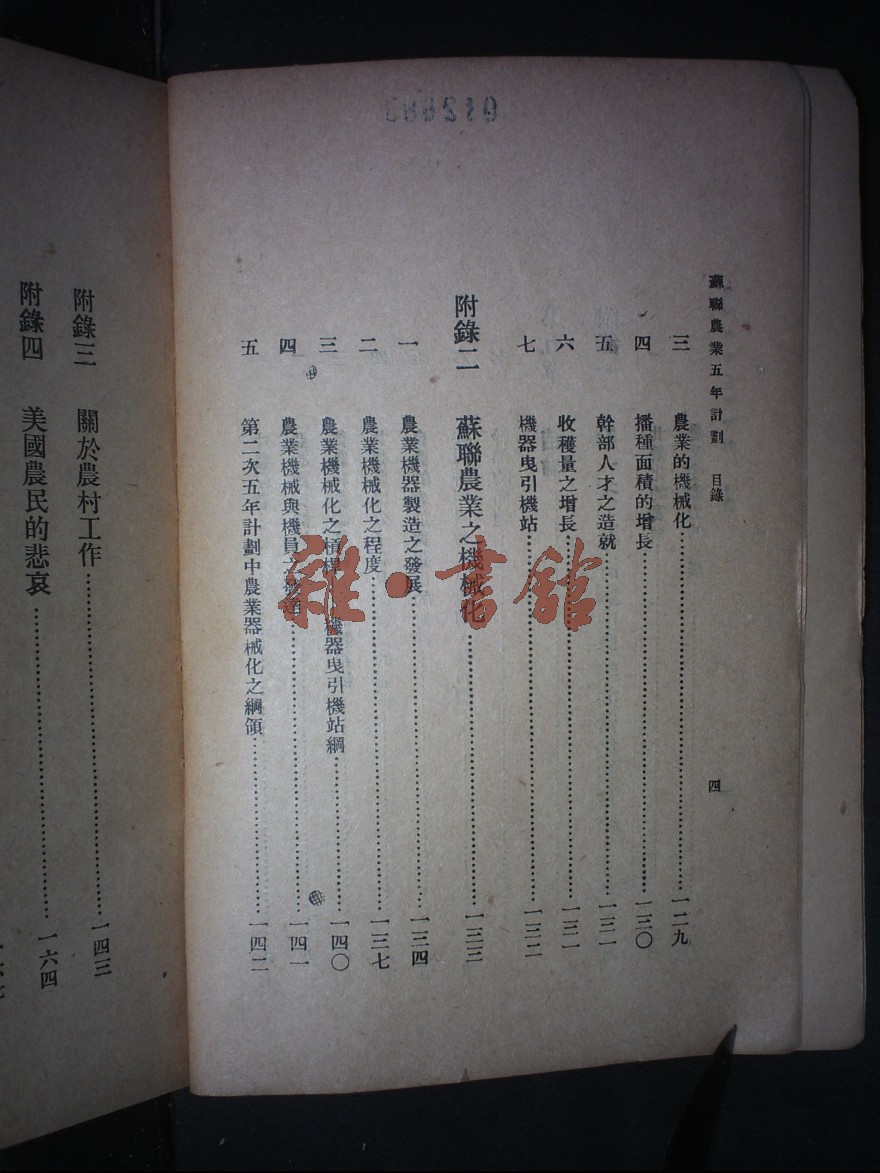 012683
蘇聯農業五年計劃 目錄 四
三 農業的機械化……一二九
四 播種面積的增長……一三〇
五 幹部人才之造就……一三一
六 收穫量之增長……一三一
七 機器曳引機站……一三二
附錄二 蘇聯農業之機械化……一三三
一 農業機器製造之發展……一三四
二 農業機械化之程度……一三七
三 農業機械化之槓桿 機器曳引機站網……一四〇
四 農業機械與機員之 ……一四一
五 第二次五年計劃中農業器械化之綱領……一四二
附錄三 關於農村工作……一四三
附錄四 美國農民的悲哀……一六四
雜·書館